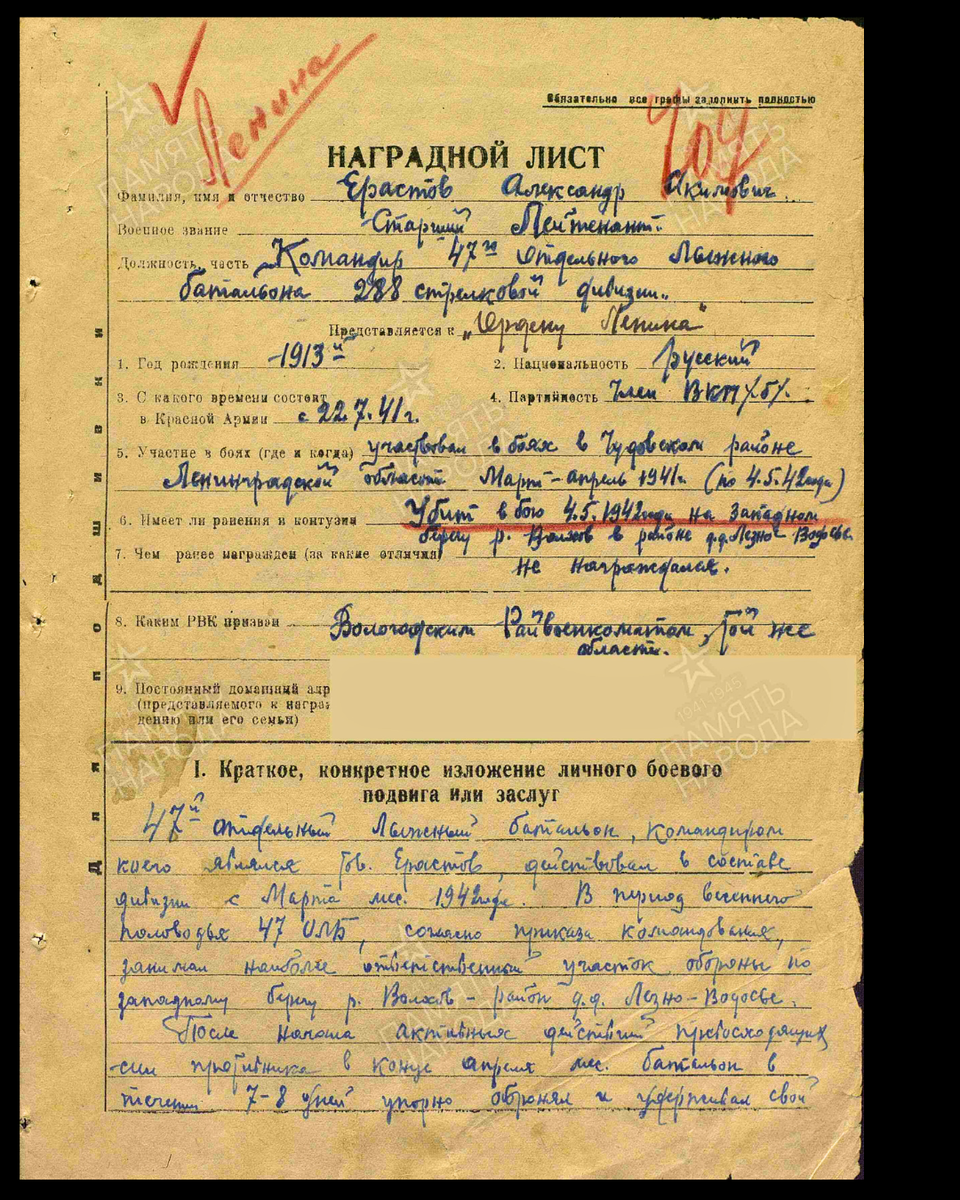 Ленина
Обязательно все графы заполнить полностью
НАГРАДНОЙ ЛИСТ
Фамилия, имя и отчество Ерастов Александр Акимович
Военное звание Старший Лейтенант.
Должность, часть Командир 47го Отдельного Лыжного
батальона 288 стрелковой дивизии.
Представляется к „Ордену Ленина"
1. Год рождения 1913й 2. Национальность русский
3. С какого времени состоит 4. Партийность Член ВКП/б/.
в Красной Армии с 22.7.41г.
5. Участие в боях (где и когда) участвовал в боях в Чудовском районе
Ленинградской области Март-апрель 1941г. (по 4.5.42года)
6. Имеет ли ранения и контузии Убит в бою 4.5.1942года на Западном
берегу р. Волхов в районе д.д. Лезно-Водосье.
7. Чем ранее награжден (за какие отличия)
не награждался.
8. Каким РВК призван Вологодским Райвоенкоматом, той же
области.
9. Постоянный домашний адр
(представляемого к награ
дению или его семьи)
Для подшивки
I. Краткое, конкретное изложение личного боевого
подвига или заслуг
47й отдельный Лыжный батальон, командиром
коего являлся тов. Ерастов, действовал в составе
дивизии с Марта мес. 1942года. В период весеннего
половодья 47 ОЛБ, согласно приказа командования,
занимал наиболее ответственный участок обороны по
западному берегу р. Волхов - район д.д. Лезно-Водосье.
После начала активных действий превосходящих
сил противника в конце апреля мес. батальон в
течении 7-8 дней упорно оборонял и удерживал свой
ПАМЯТЬ
НАРОДА
1941-1945